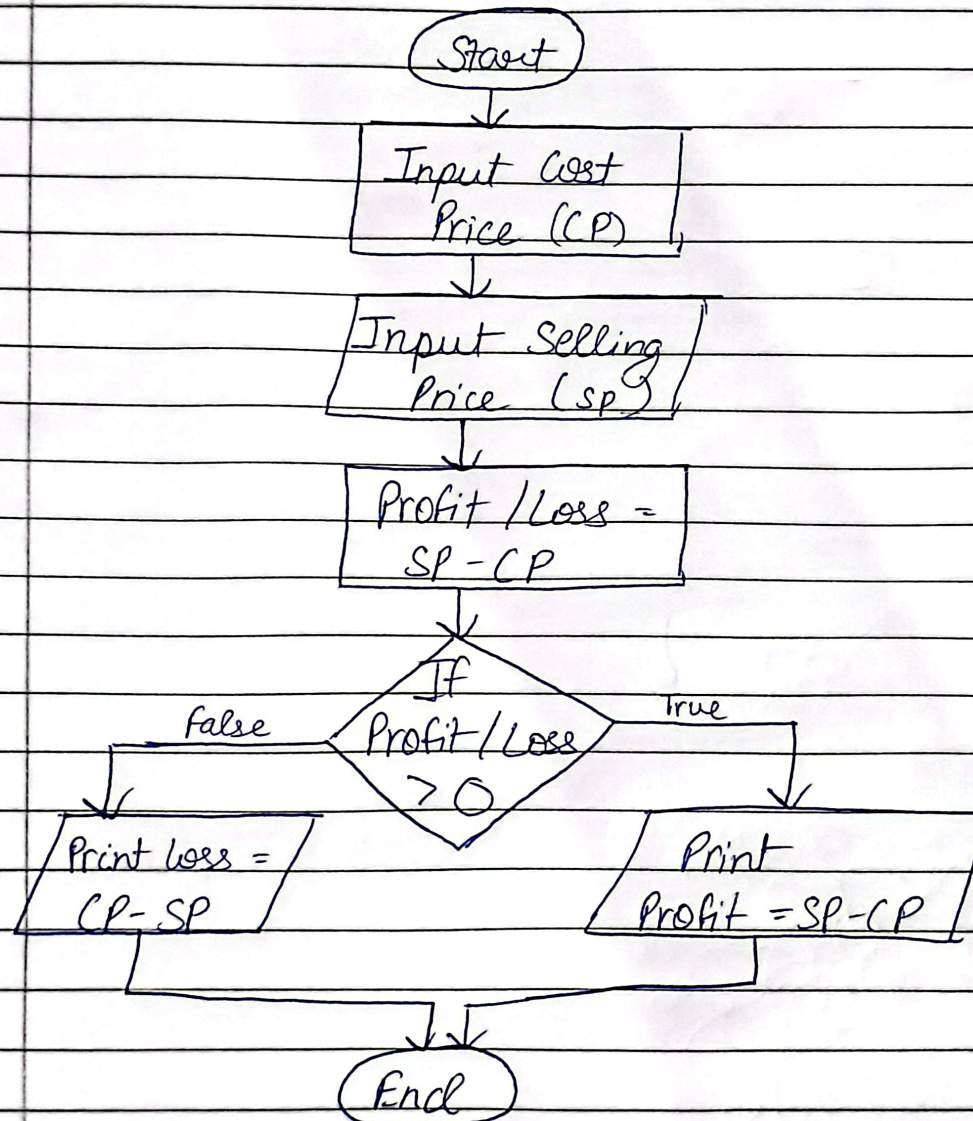 Start
Input Cost
Price (CP)
Input Selling
Price (SP)
Profit / Loss =
SP - CP
If
Profit / Loss
> 0
False
True
Print loss =
CP - SP
Print
Profit = SP - CP
End